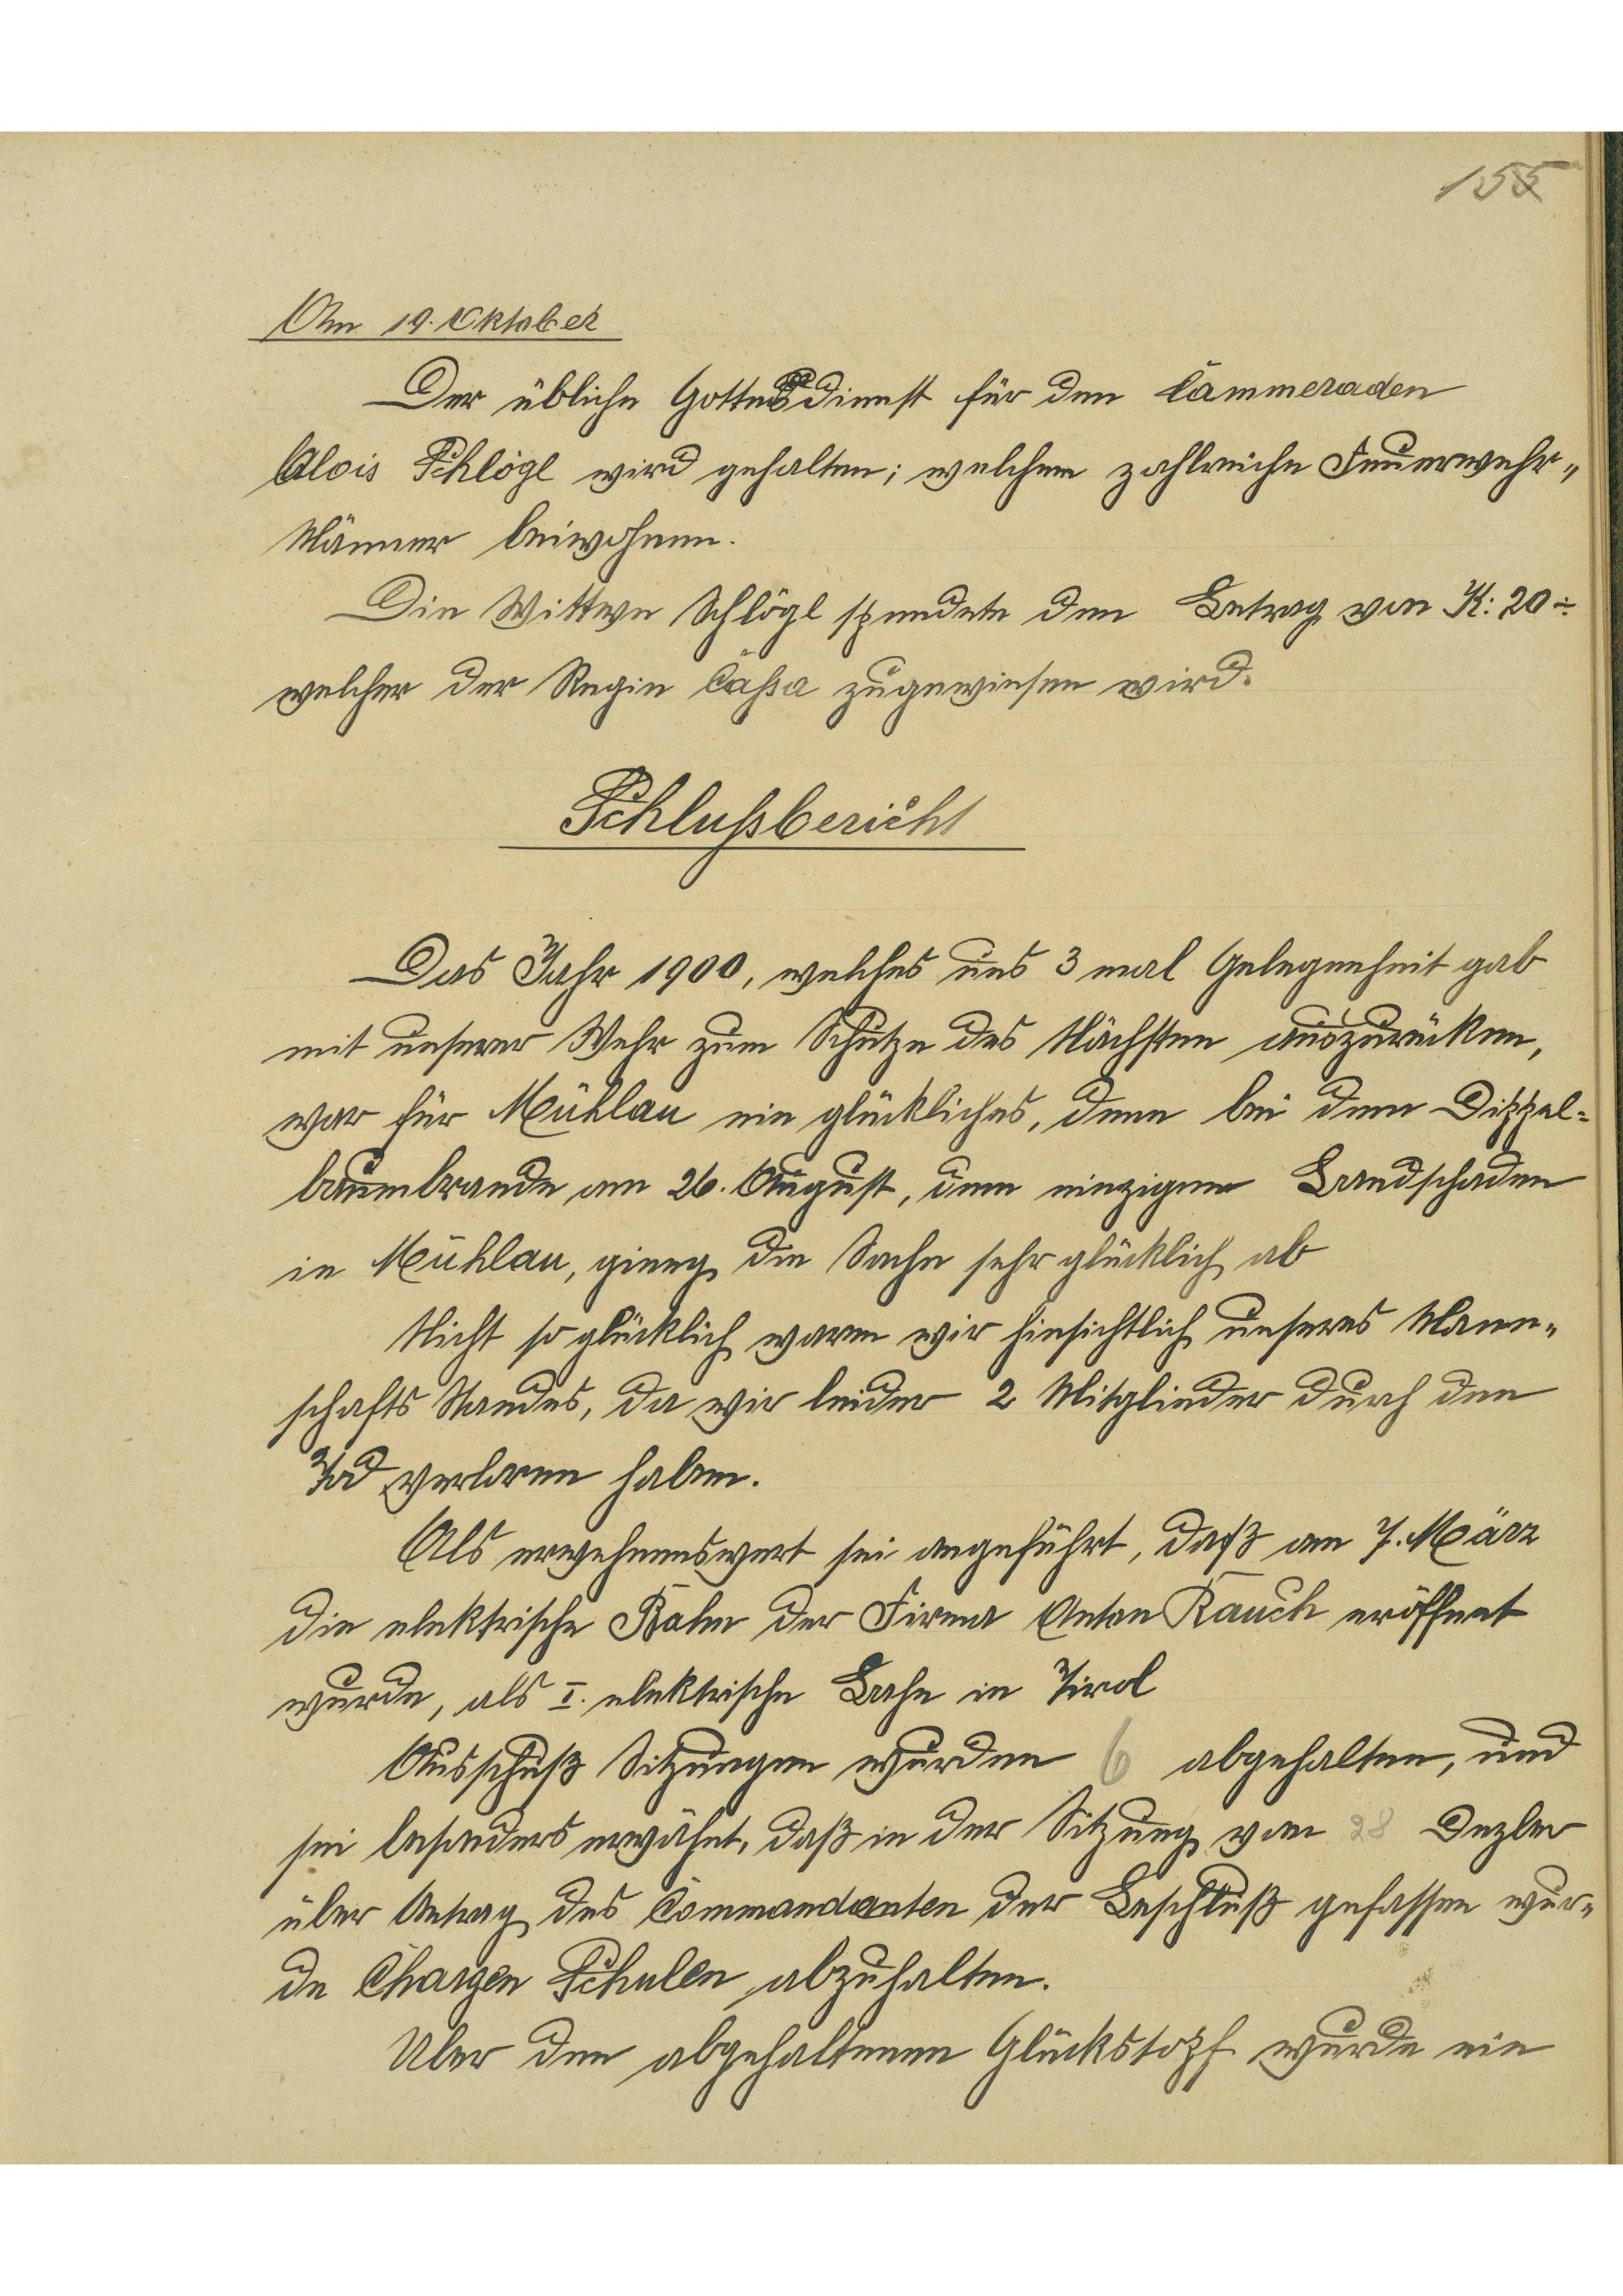 155
Am 19. Oktober
Der übliche Gottesdienst für den Cammeraden
Alois Schlögl wird gehalten; welchem zahlreiche Feuerwehr„
Männer beiwohnen.
Die Wittwe Schlögl spendete den Betrag von K: 20 ÷
welcher der Regie Cassa zugewiesen wird.
Schlußbericht
Das Jahr 1900, welches uns 3 mal Gelegenheit gab
mit unserer Wehr zum Schutze des Nächsten auszurücken,
war für Mühlau ein glückliches, denn bei dem Dippel-
baumbrande am 26. August, dem einzigen Brandschaden
in Mühlau, gieng die Sache sehr glücklich ab
Nicht so glücklich waren wir hinsichtlich unseres Mann„
schafts Standes, da wir leider 2 Mitglieder durch den
Tod verloren haben.
Als erwehnenswert sei angeführt, daß am 7. März
die elektrische Bahn der Firma Anton Rauch eröffnet
wurde, als I. elektrische Bahn in Tirol
Ausschuß Sitzungen wurden 6 abgehalten, und
sei besonders erwähnt, daß in der Sitzung vom 28 Dezber
über Antrag des Commandanten der Beschluß gefassen wur„
de Chargen Schulen abzuhalten.
Uber den abgehaltenen Glückstopf wurde ein